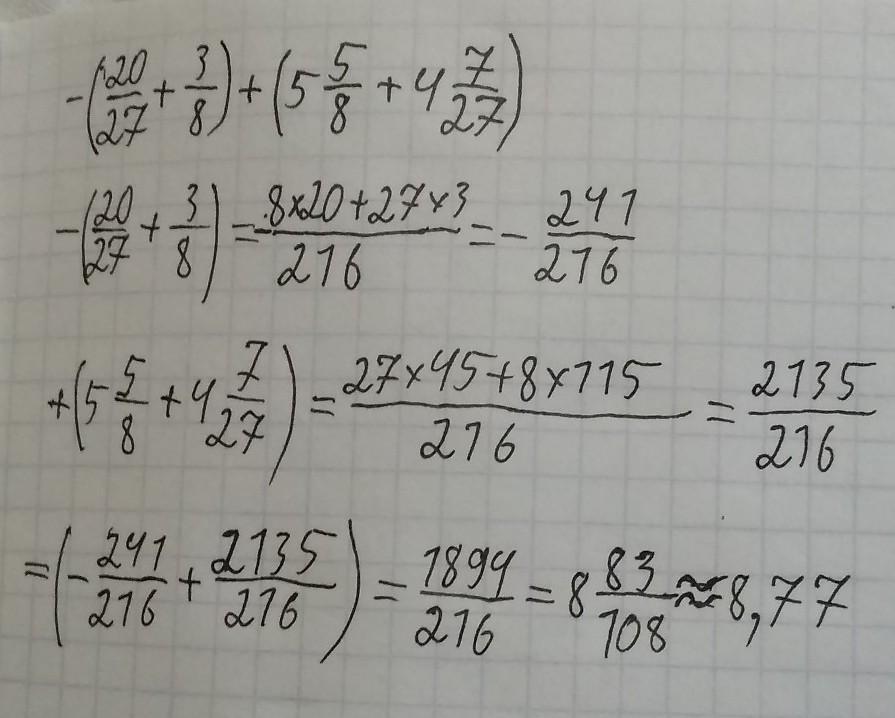 -(20/27 + 3/8) + (5 5/8 + 4 7/27)
-(20/27 + 3/8) = 8×20+27×3/216 = - 241/216
+(5 5/8 + 4 7/27) = 27×45+8×115/216 = 2135/216
=(-241/216 + 2135/216) = 1894/216 = 8 83/108 ≈ 8,77